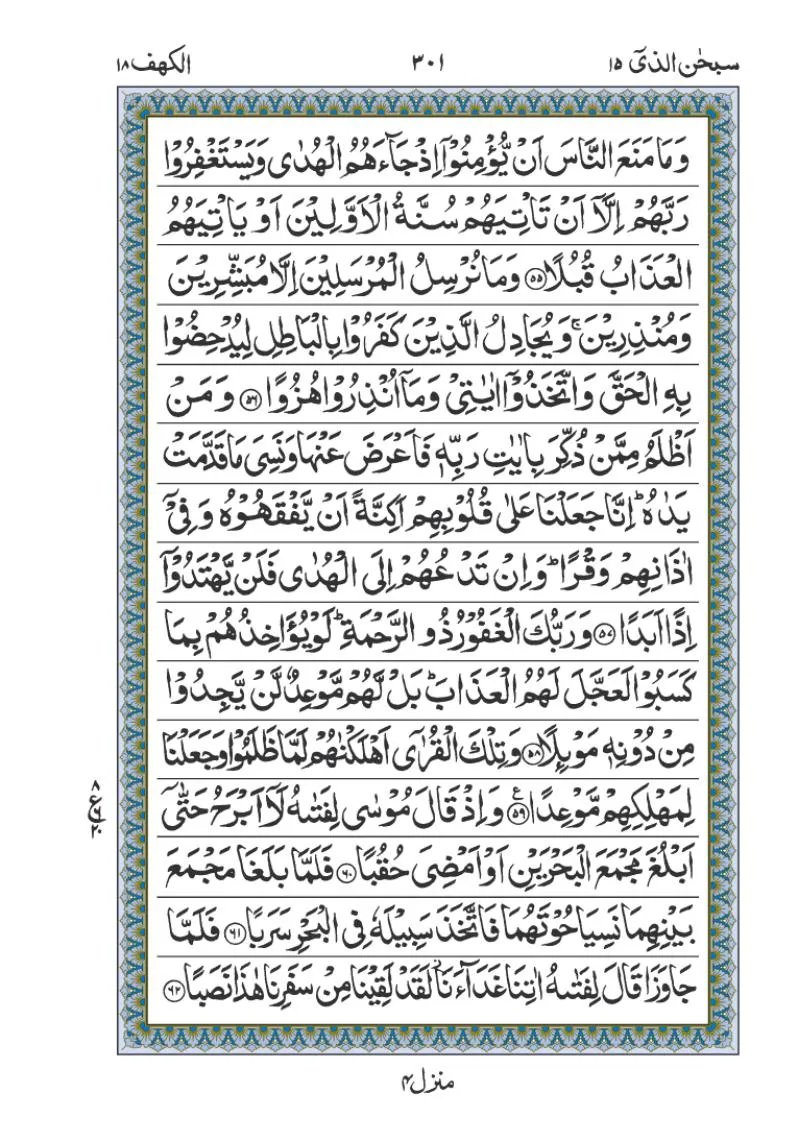 سبحٰن الذیٓ ١٥
٣٠١
الکهف ١٨
وَمَا مَنَعَ النَّاسَ اَنْ یُّؤْمِنُوْۤا اِذْ جَآءَهُمُ الْهُدٰی وَیَسْتَغْفِرُوْا
رَبَّهُمْ اِلَّاۤ اَنْ تَاْتِیَهُمْ سُنَّةُ الْاَوَّلِیْنَ اَوْ یَاْتِیَهُمُ
الْعَذَابُ قُبُلًا ﴿٥٥﴾ وَمَا نُرْسِلُ الْمُرْسَلِیْنَ اِلَّا مُبَشِّرِیْنَ
وَمُنْذِرِیْنَ ۚ وَیُجَادِلُ الَّذِیْنَ كَفَرُوْا بِالْبَاطِلِ لِیُدْحِضُوْا
بِهِ الْحَقَّ وَاتَّخَذُوْۤا اٰیٰتِیْ وَمَاۤ اُنْذِرُوْا هُزُوًا ﴿٥٦﴾ وَمَنْ
اَظْلَمُ مِمَّنْ ذُكِّرَ بِاٰیٰتِ رَبِّهٖ فَاَعْرَضَ عَنْهَا وَنَسِیَ مَا قَدَّمَتْ
یَدٰهُ ؕ اِنَّا جَعَلْنَا عَلٰی قُلُوْبِهِمْ اَكِنَّةً اَنْ یَّفْقَهُوْهُ وَفِیْۤ
اٰذَانِهِمْ وَقْرًا ؕ وَاِنْ تَدْعُهُمْ اِلَی الْهُدٰی فَلَنْ یَّهْتَدُوْۤا
اِذًا اَبَدًا ﴿٥٧﴾ وَرَبُّكَ الْغَفُوْرُ ذُو الرَّحْمَةِ ؕ لَوْ یُؤَاخِذُهُمْ بِمَا
كَسَبُوْا لَعَجَّلَ لَهُمُ الْعَذَابَ ؕ بَلْ لَّهُمْ مَّوْعِدٌ لَّنْ یَّجِدُوْا
مِنْ دُوْنِهٖ مَوْىِٕلًا ﴿٥٨﴾ وَتِلْكَ الْقُرٰۤی اَهْلَكْنٰهُمْ لَمَّا ظَلَمُوْا وَجَعَلْنَا
لِمَهْلِكِهِمْ مَّوْعِدًا ﴿٥٩﴾ ع وَاِذْ قَالَ مُوْسٰی لِفَتٰىهُ لَاۤ اَبْرَحُ حَتّٰۤی
اَبْلُغَ مَجْمَعَ الْبَحْرَیْنِ اَوْ اَمْضِیَ حُقُبًا ﴿٦٠﴾ فَلَمَّا بَلَغَا مَجْمَعَ
بَیْنِهِمَا نَسِیَا حُوْتَهُمَا فَاتَّخَذَ سَبِیْلَهٗ فِی الْبَحْرِ سَرَبًا ﴿٦١﴾ فَلَمَّا
جَاوَزَا قَالَ لِفَتٰىهُ اٰتِنَا غَدَآءَنَا ؗ لَقَدْ لَقِیْنَا مِنْ سَفَرِنَا هٰذَا نَصَبًا ﴿٦٢﴾
٨
ع
٢٠
منزل ۴